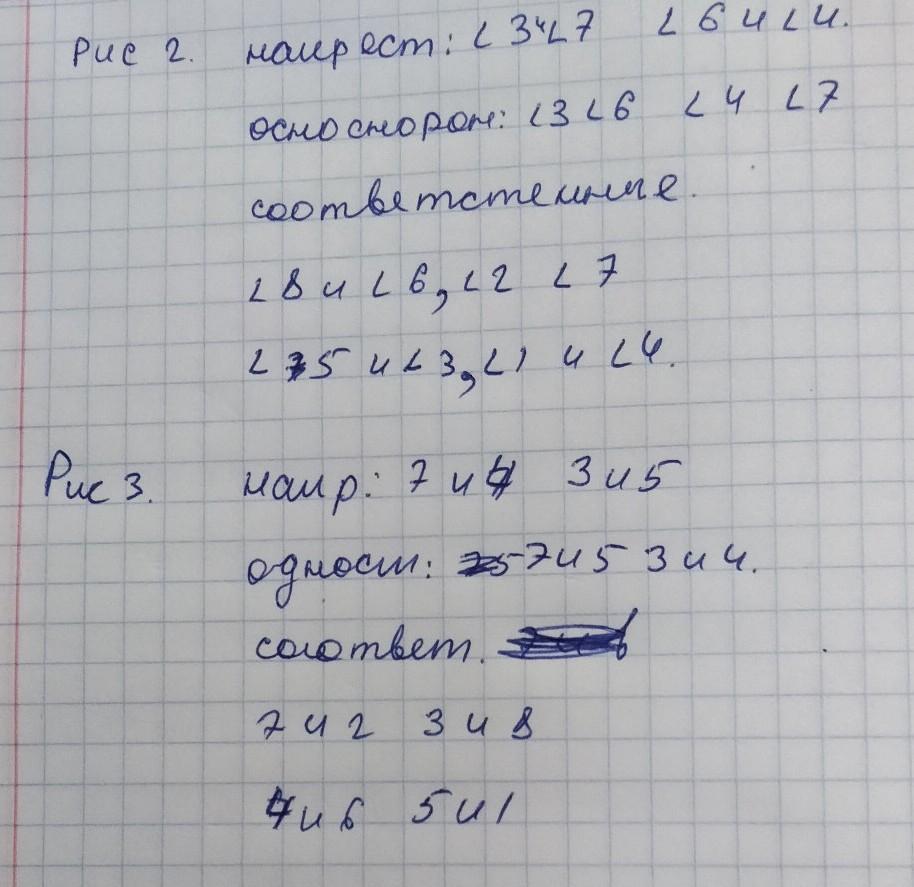 Рис 2. накрест: ∠3 и ∠7 ∠6 и ∠4.
односторон: ∠3 ∠6 ∠4 ∠7
соответственные.
∠8 и ∠6, ∠2 ∠7
∠5 и ∠3, ∠1 и ∠4.
Рис 3. накр: 7 и 4 3 и 5
одност: 7 и 5 3 и 4.
соответ.
7 и 2 3 и 8
4 и 6 5 и 1